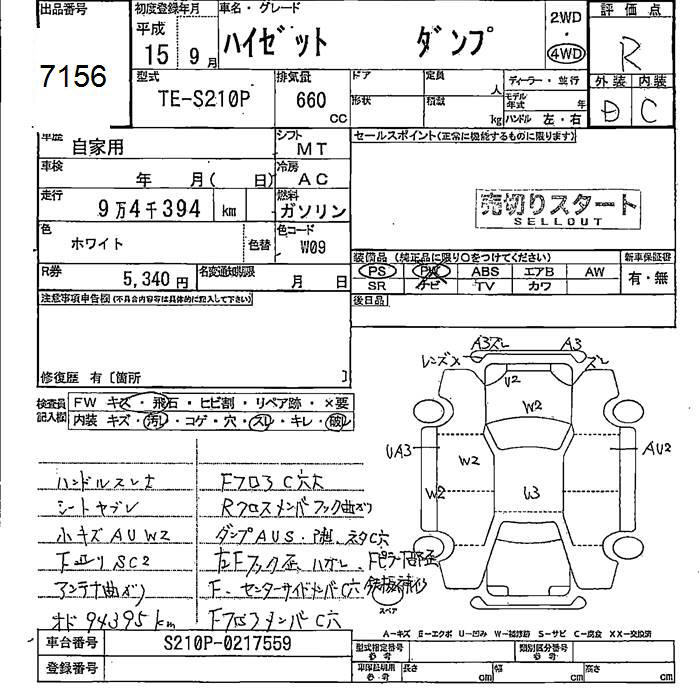 出品番号 初度登録年月 車名・グレード 2WD 評価点
7156 平成 15 9月 ハイゼット ダンプ 4WD R
型式 TE-S210P 排気量 660 CC ドア 定員 人 ディーラー・並行 外装 内装
形状 積載 kg モデル年式 年 ハンドル 左・右 D C
車歴 自家用 シフト MT セールスポイント(正常に機能するものに限ります)
車検 年 月( 日) 冷房 AC
走行 9万4千394 km 燃料 ガソリン 売切りスタート
SELLOUT
色 ホワイト 色替 色コード W09
装備品 (純正品に限り○をつけてください) 新車保証書
R券 5,340円 名変通知期限 月 日 PS PW ABS エアB AW 有・無
SR ナビ TV カワ
注意事項申告欄(不具合内容等は具体的に記入して下さい) 後日品
修復歴 有〔箇所 〕
検査員記入欄 FW キズ・飛石・ヒビ割・リペア跡・×要
内装 キズ・汚レ・コゲ・穴・スレ・キレ・破レ
A3ズレ A3
レンズ× ズレ
U2
W2
UA3 W2 AU2
W2 U3
ハンドルスレキ Fフロア C穴大
シートヤブレ Rクロスメンバフック曲がり
小キズAUW2 ダンプAUS
SC2 左Fフック歪
アンテナ曲がり F、センターサイドメンバC穴
オド 94395km Fフロアメンバ C穴
スペア
A-キズ E-エクボ U-凹み W-補修跡 S-サビ C-腐食 XX-交換済
車台番号 S210P-0217559 型式指定番号 参考 類別区分番号 参考
登録番号 車庫証明用 参考 長さ cm 幅 cm 高さ cm